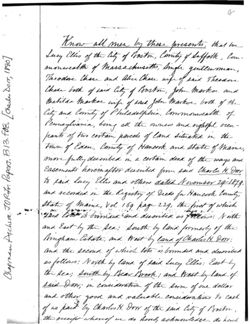 Know all men by these presents, that we
Lucy Ellis of the City of Boston, County of Suffolk, Com-
monwealth of Massachusetts, single gentlewoman,
Theodore Chase and Alice Chase wife of said Theodore
Chase both of said City of Boston, John Markoe and
Matilda Markoe wife of said John Markoe both of the
City and County of Philadelphia, Commonwealth of
Pennsylvania, being at the owners and
parts of two certain parcels of Land situated in the
town of Eden, County of Hancock and State of Maine,
more fully described in a certain deed of the ways and
Easements hereinafter described from said Charles H. Dorr
to said Lucy Ellis and others dated November 29 1879
and recorded in the Registry of Deeds for Hancock County
State of Maine, Vol 169 page 229, the first of which
said lots is bounded and described as follows: North
and East by the sea; South by land formerly of the
Bingham Estate, and West by land of Charles H. Dorr;
and the second of which lots is bounded and described
as follows: North by land of said Lucy Ellis; East by
the sea; South by Bear Brook; and West by land of
said Dorr, in consideration of the sum of one dollar
and other good and valuable considerations to each
of us paid by Charles H. Dorr of the said City of Boston
the receipt whereof we do hereby acknowledge, do hereby